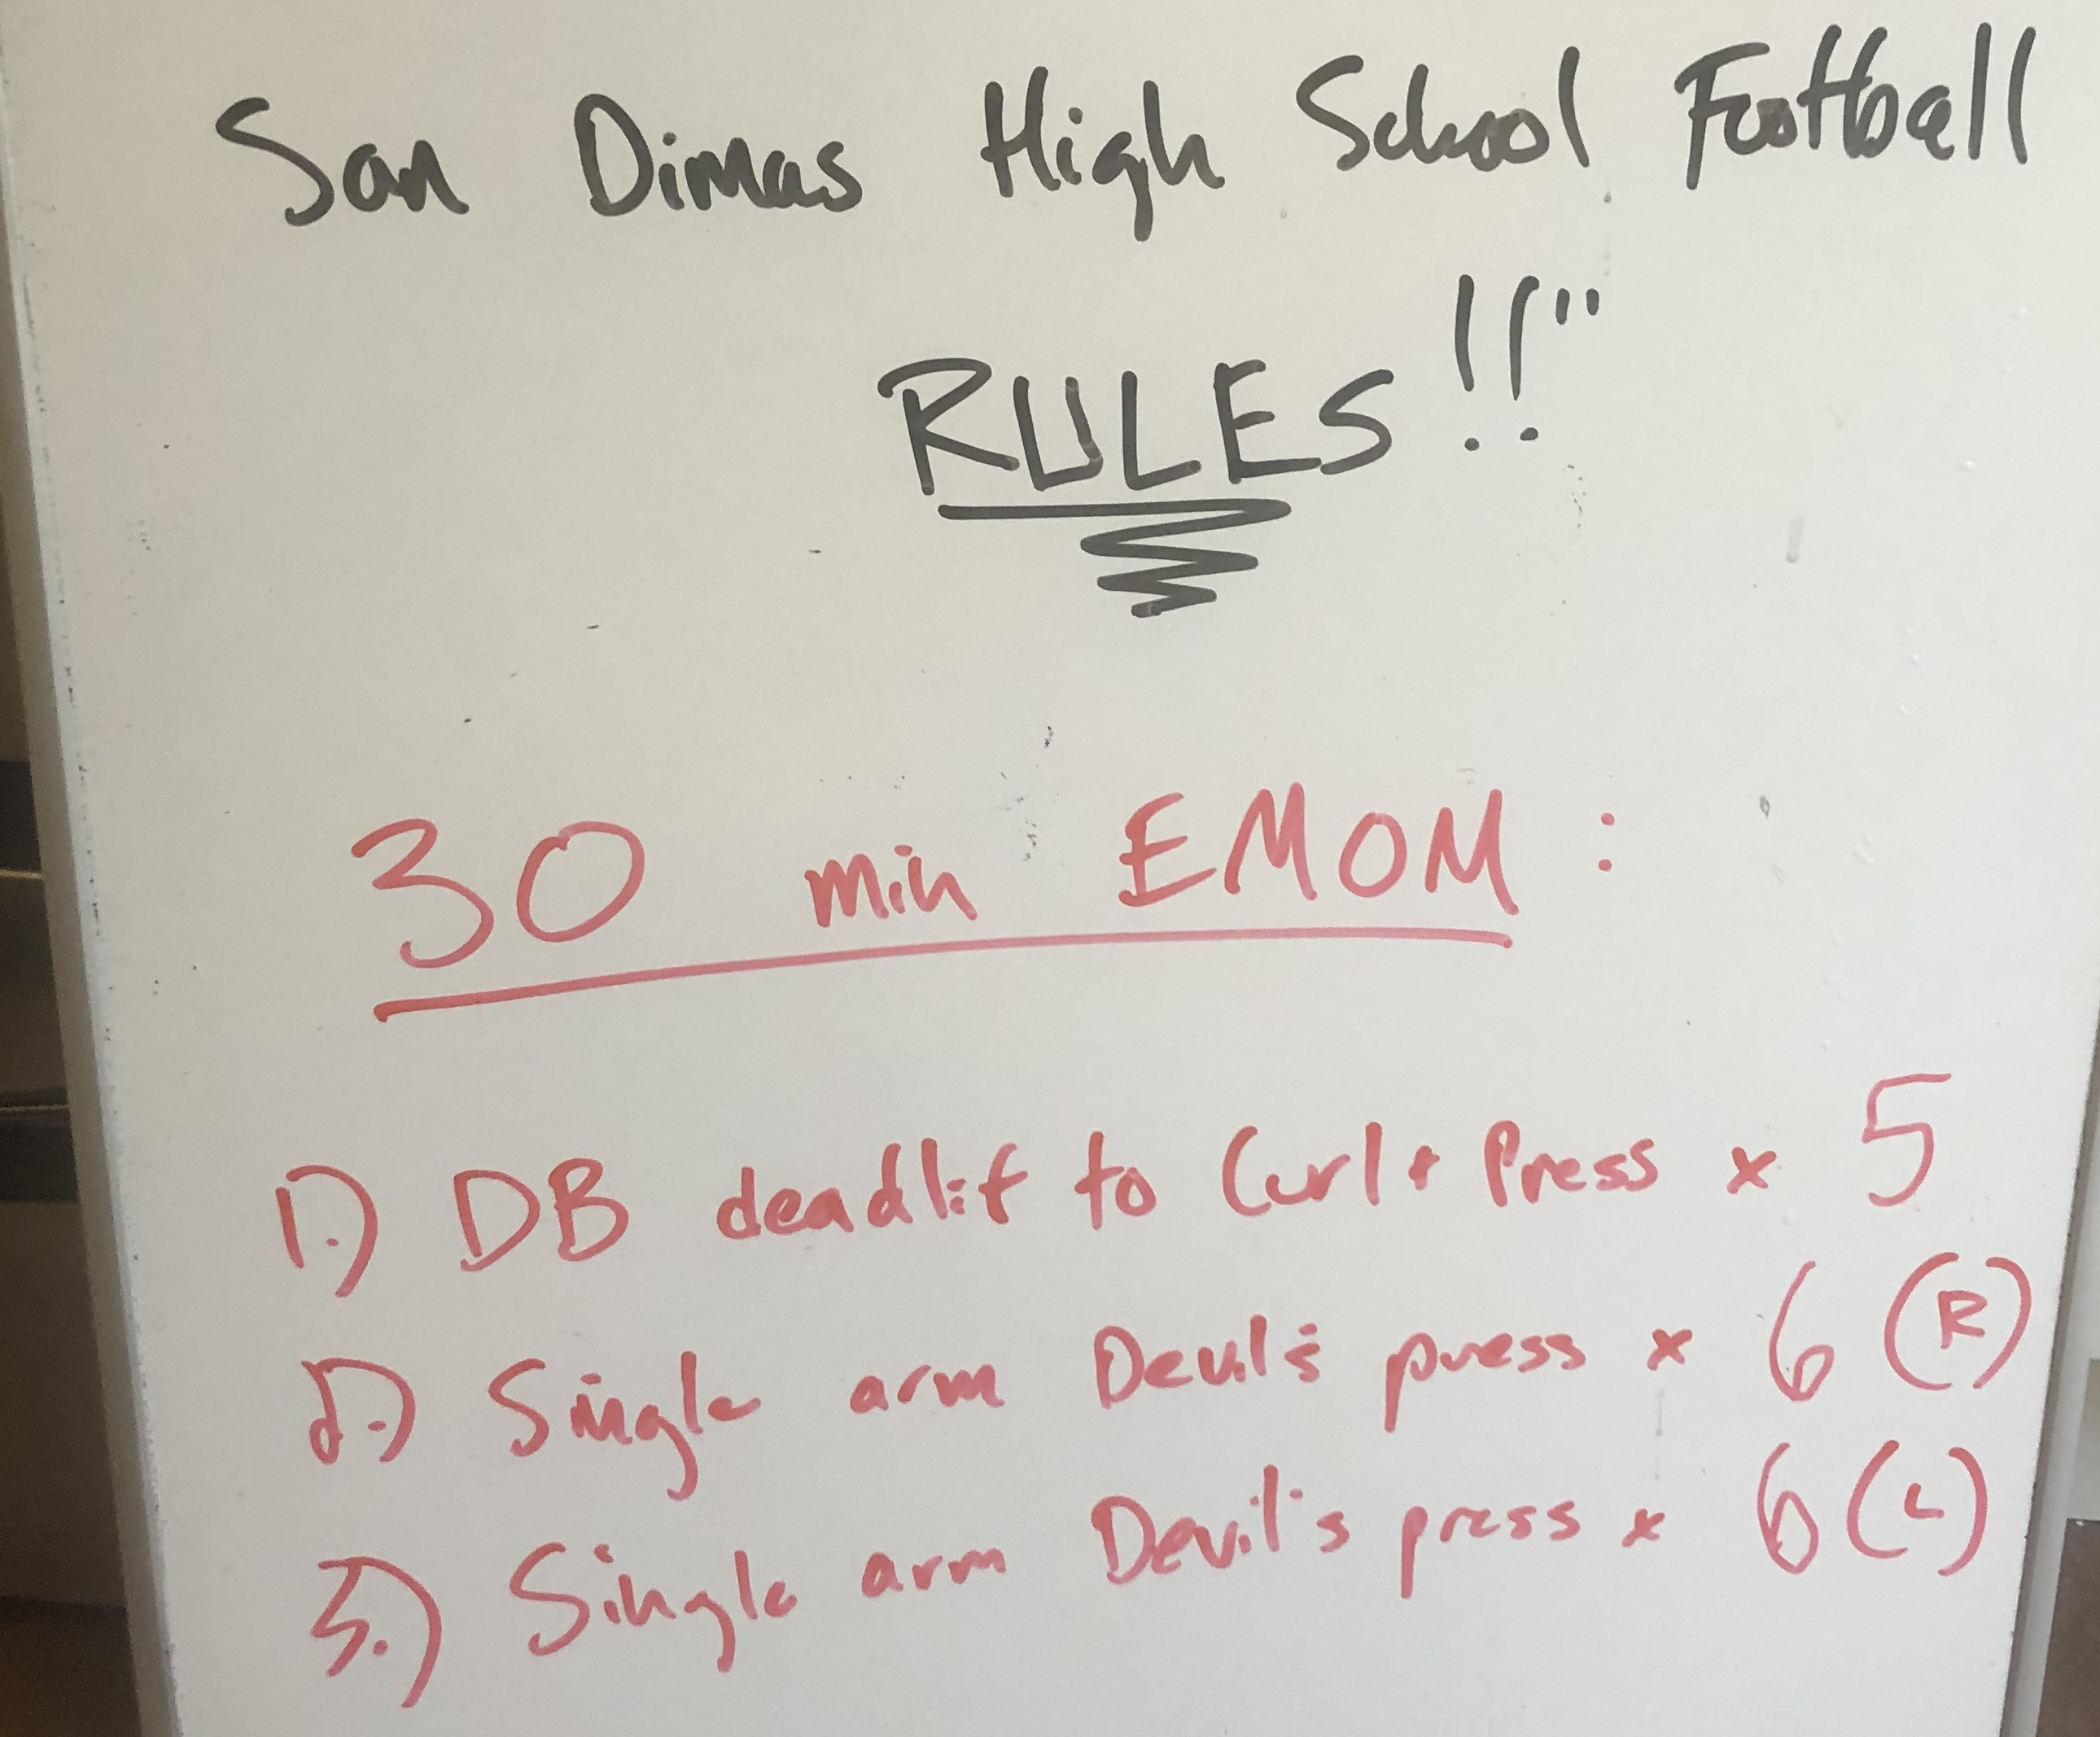 San Dimas High School Football
RULES!!"
30 min EMOM:
1.) DB deadlift to Curl + Press x 5
2.) Single arm Devil's press x 6 (R)
3.) Single arm Devil's press x 6 (L)